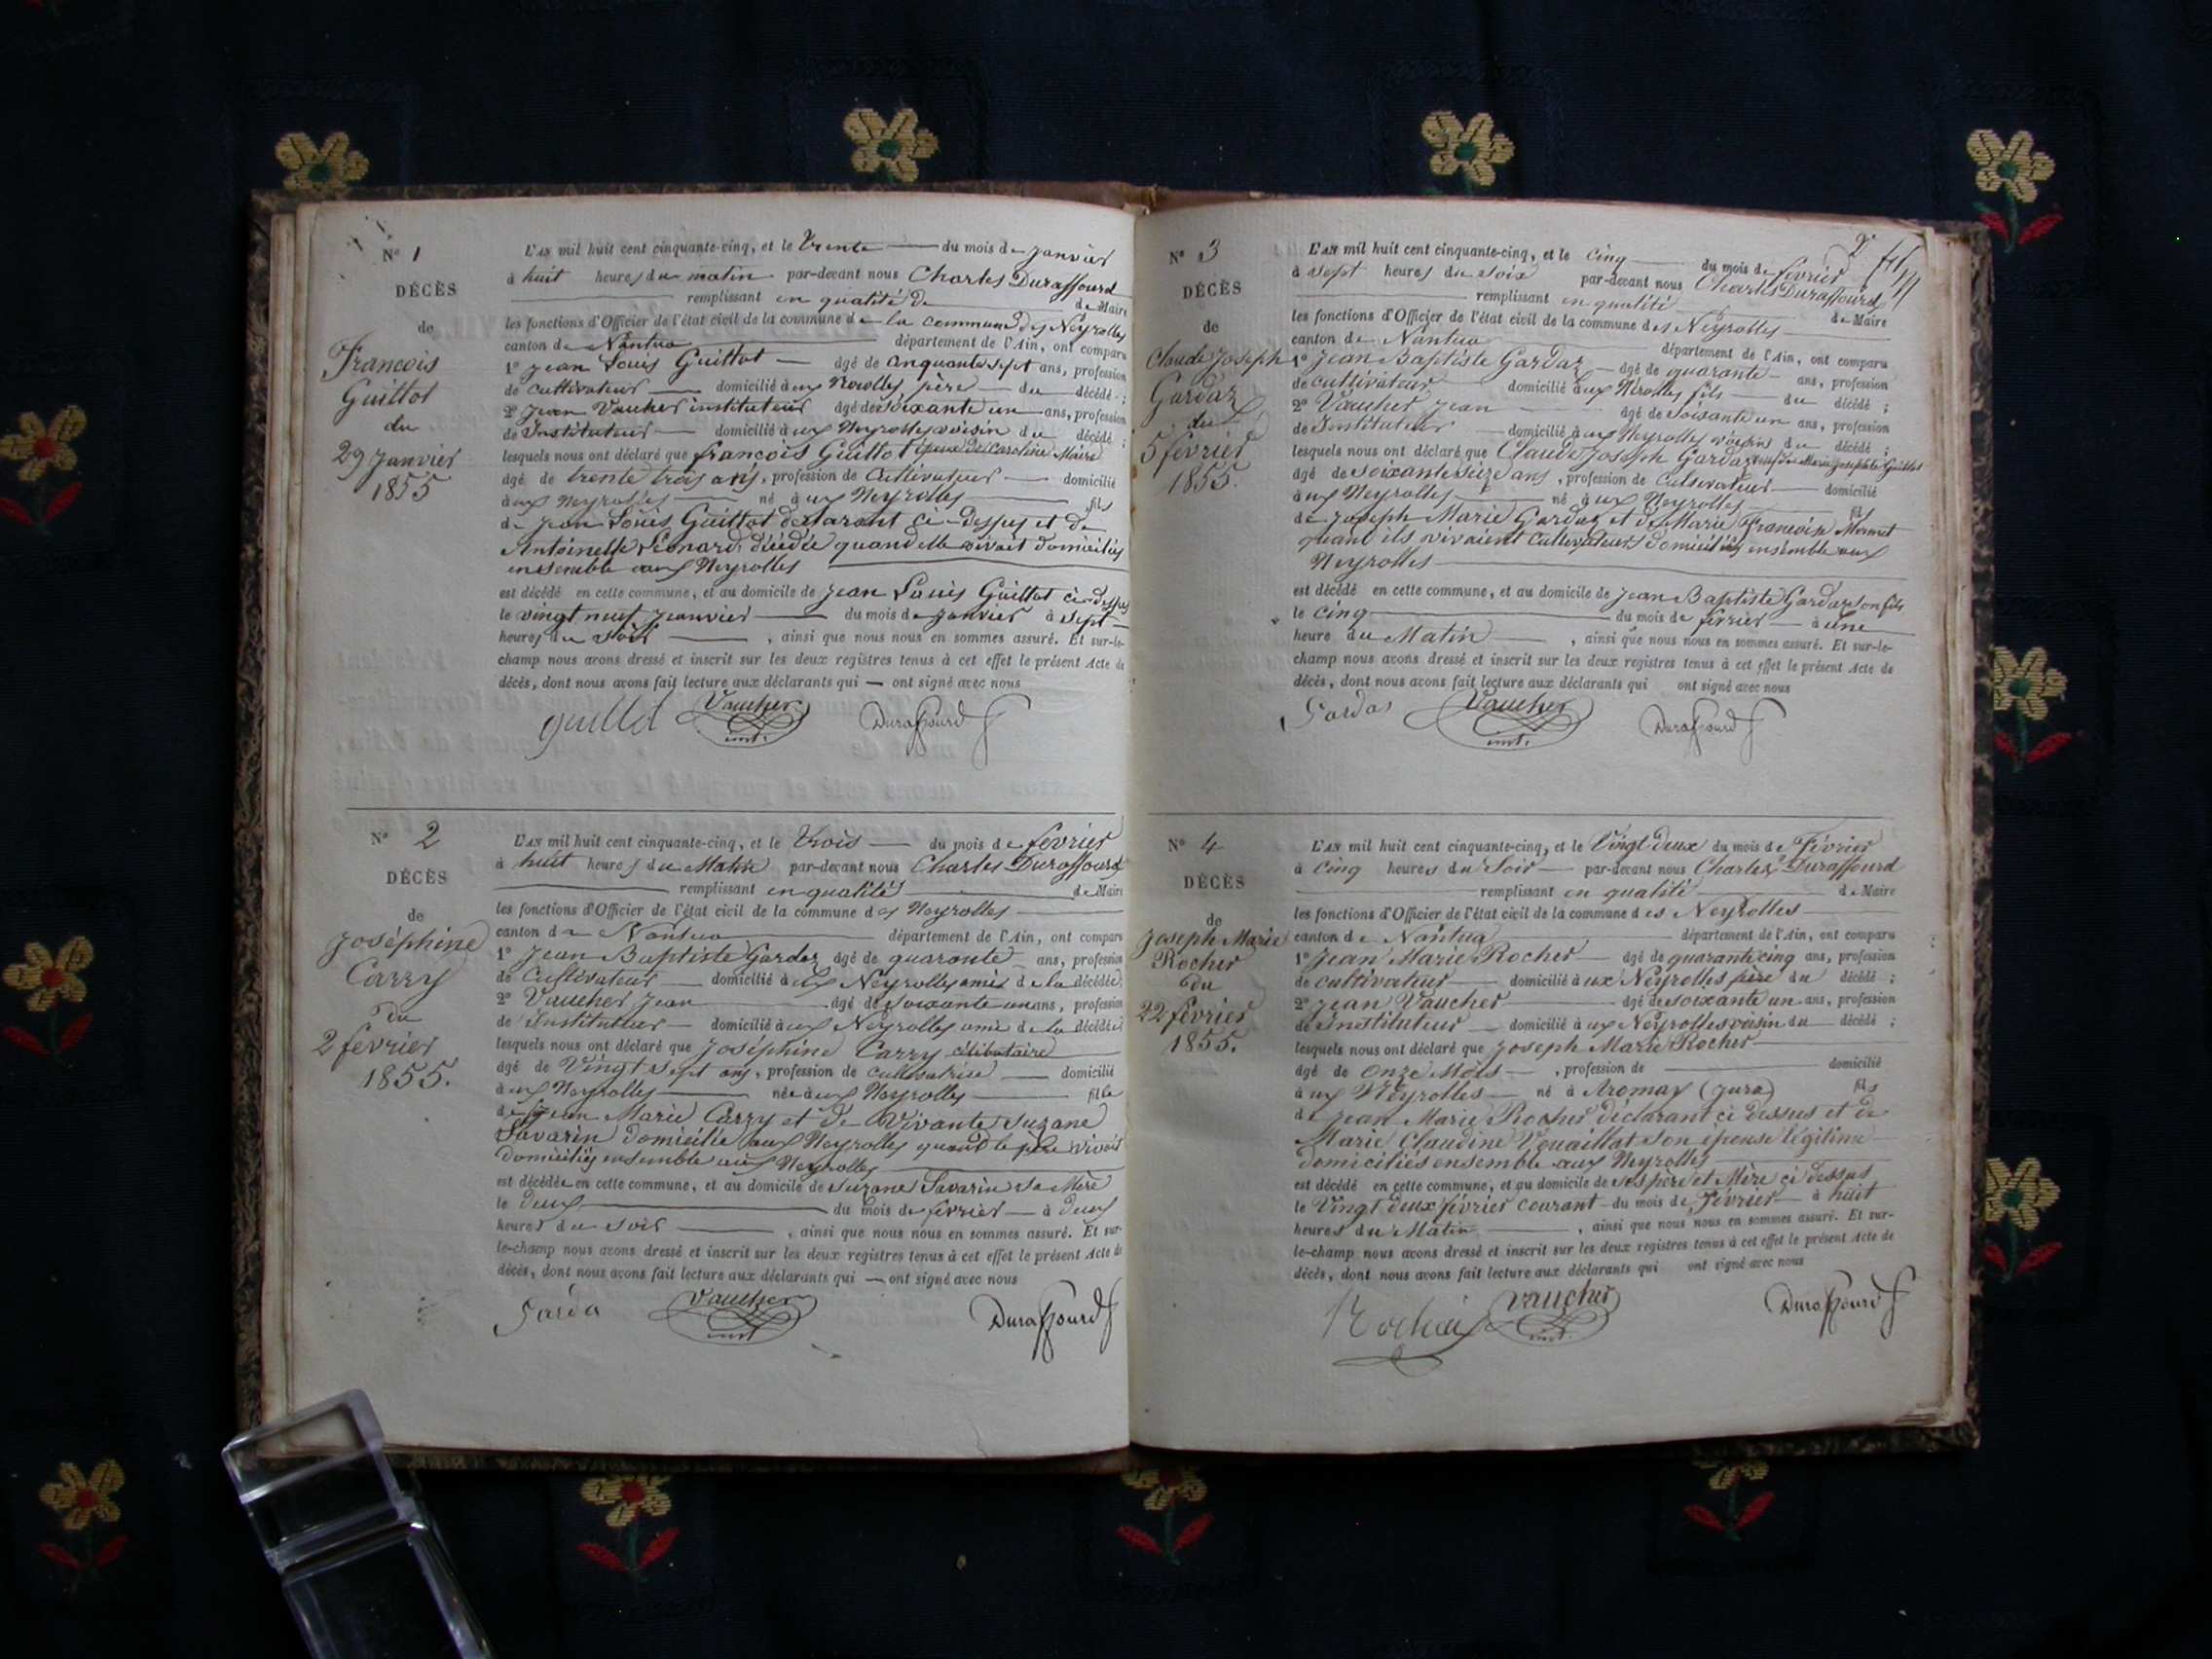 N° 1
DÉCÈS
de
Francois
Guillot
du
29 Janvier
1855
L'AN mil huit cent cinquante-cinq, et le Trente du mois de Janvier
à huit heures du matin par-devant nous Charles Duraffourd
remplissant en qualité de de Maire
les fonctions d'Officier de l'état civil de la commune de la commune des Neyrolles
canton de Nantua département de l'Ain, ont comparu
1° Jean Louis Guillot âgé de cinquante sept ans, profession
de cultivateur domicilié aux Neyrolles père du décédé ;
2° Jean Vaucher instituteur âgé de soixante un ans, profession
de Instituteur domicilié à aux Neyrolles voisin du décédé ;
lesquels nous ont déclaré que francois Guillot époux de Caroline Maire
âgé de trente trois ans, profession de Cultivateur domicilié
à aux Neyrolles né à aux Neyrolles fils
de Jean Louis Guillot déclarant ci-dessus et de
Antoinette Leonard décédée quand elle vivait domiciliés
ensemble aux Neyrolles
est décédé en cette commune, et au domicile de Jean Louis Guillot ci-dessus
le vingt neuf Janvier du mois de Janvier à sept
heures du soir , ainsi que nous nous en sommes assuré. Et sur-le-
champ nous avons dressé et inscrit sur les deux registres tenus à cet effet le présent Acte de
décès, dont nous avons fait lecture aux déclarants qui ont signé avec nous
Vaucher Duraffourd
inst.
N° 2
DÉCÈS
de
Joséphine
Carry
du
2 fevrier
1855.
L'AN mil huit cent cinquante-cinq, et le Trois du mois de février
à huit heures du Matin par-devant nous Charles Duraffourd
remplissant en qualité de Maire
les fonctions d'Officier de l'état civil de la commune des Neyrolles
canton de Nantua département de l'Ain, ont comparu
1° Jean Baptiste Gardaz âgé de quarante ans, profession
de Cultivateur domicilié à aux Neyrolles amis de la décédée;
2° Vaucher Jean âgé de soixante un ans, profession
de Instituteur domicilié à aux Neyrolles amis de la décédée;
lesquels nous ont déclaré que Joséphine Carry célibataire
âgé de Vingt sept ans, profession de cultivatrice domicilié
à aux Neyrolles née à aux Neyrolles fille
de Jean Marie Carry et de Vivante Suzane
Savarin domicilie aux Neyrolles quand le père vivait
domiciliés ensemble aux Neyrolles
est décédée en cette commune, et au domicile de Suzane Savarin sa Mère
le deux du mois de février à deux
heures du soir , ainsi que nous nous en sommes assuré. Et sur-
le-champ nous avons dressé et inscrit sur les deux registres tenus à cet effet le présent Acte de
décès, dont nous avons fait lecture aux déclarants qui ont signé avec nous
Garda Vaucher Duraffourd
inst.
N° 3
DÉCÈS
de
Claude Joseph
Gardaz
du
5 fevrier
1855.
L'AN mil huit cent cinquante-cinq, et le cinq du mois de février
à sept heures du soir par-devant nous Charles Duraffourd
remplissant en qualité de Maire
les fonctions d'Officier de l'état civil de la commune des Neyrolles
canton de Nantua département de l'Ain, ont comparu
1° Jean Baptiste Gardaz âgé de quarante ans, profession
de cultivateur domicilié aux Neyrolles fils du décédé ;
2° Vaucher Jean âgé de soixante un ans, profession
de Instituteur domicilié à aux Neyrolles voisin du décédé ;
lesquels nous ont déclaré que Claude Joseph Gardaz Guillot
âgé de soixante seize ans, profession de cultivateur domicilié
à aux Neyrolles né à aux Neyrolles fils
de Joseph Marie Gardaz et de Marie Francoise Mermet
quant ils vivaient cultivateurs domiciliés ensemble aux
Neyrolles
est décédé en cette commune, et au domicile de Jean Baptiste Gardaz son fils
le cinq du mois de février à une
heure du Matin , ainsi que nous nous en sommes assuré. Et sur-le-
champ nous avons dressé et inscrit sur les deux registres tenus à cet effet le présent Acte de
décès, dont nous avons fait lecture aux déclarants qui ont signé avec nous
Gardas Vaucher Duraffourd
inst.
N° 4
DÉCÈS
de
Joseph Marie
Rocher
du
22 février
1855.
L'AN mil huit cent cinquante-cinq, et le Vingt deux du mois de Février
à Cinq heures du Soir par-devant nous Charles Duraffourd
remplissant en qualité de Maire
les fonctions d'Officier de l'état civil de la commune des Neyrolles
canton de Nantua département de l'Ain, ont comparu
1° Jean Marie Rocher âgé de quarante cinq ans, profession
de cultivateur domicilié aux Neyrolles père du décédé ;
2° Jean Vaucher âgé de soixante un ans, profession
de Instituteur domicilié à aux Neyrolles voisin du décédé ;
lesquels nous ont déclaré que Joseph Marie Rocher
âgé de onze Mois , profession de domicilié
à aux Neyrolles né à Aromas (Jura) fils
de Jean Marie Rocher déclarant ci dessus et de
Marie Claudine Vouaillat son épouse légitime
domiciliés ensemble aux Neyrolles
est décédé en cette commune, et au domicile de ses père et Mère ci dessus
le Vingt deux février courant du mois de Février à huit
heures du Matin , ainsi que nous nous en sommes assuré. Et sur-
le-champ nous avons dressé et inscrit sur les deux registres tenus à cet effet le présent Acte de
décès, dont nous avons fait lecture aux déclarants qui ont signé avec nous
Vaucher Duraffourd
inst.